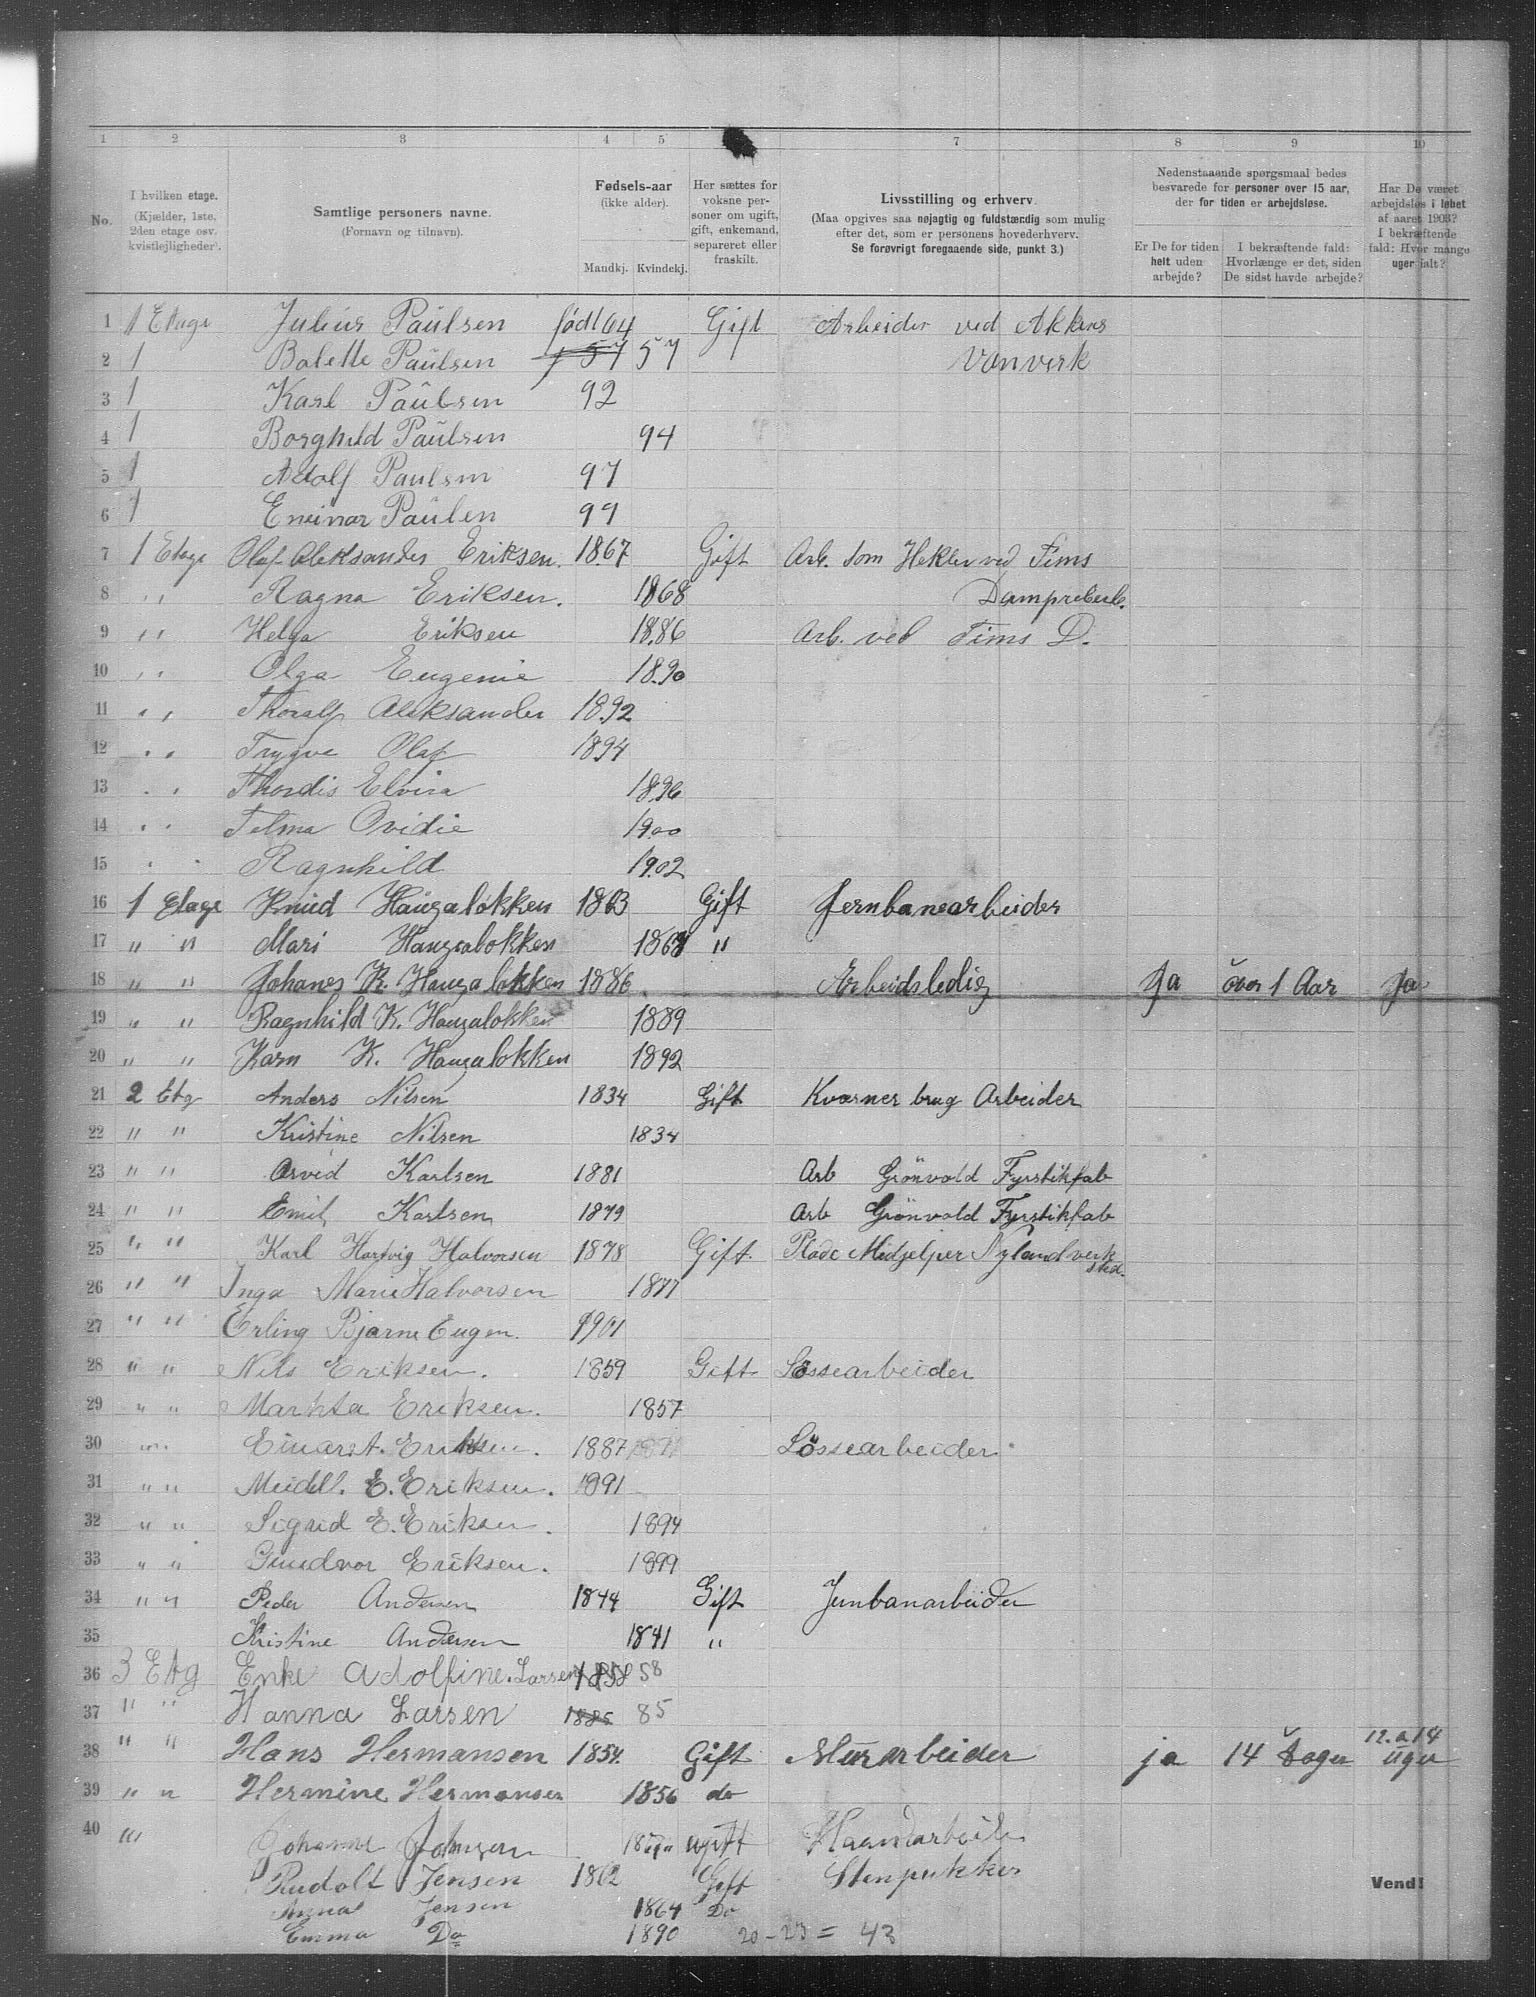 1 2 3 4 5 6 7 8 9 10
No.
I hvilken etage.
(Kjælder, 1ste,
2den etage osv.
kvistlejligheder).
Samtlige personers navne.
(Fornavn og tilnavn).
Fødsels-aar
(ikke alder).
Mandkj. Kvindekj.
Her sættes for
voksne per-
soner om ugift,
gift, enkemand,
separeret eller
fraskilt.
Livsstilling og erhverv.
(Maa opgives saa nøjagtig og fuldstændig som mulig
efter det, som er personens hovederhverv.
Se forøvrigt foregaaende side, punkt 3.)
Nedenstaaende spørgsmaal bedes
besvarede for personer over 15 aar,
der for tiden er arbejdsløse.
Er De for tiden
helt uden
arbejde?
I bekræftende fald:
Hvorlænge er det, siden
De sidst havde arbejde?
Har De været
arbejdsløs i løbet
af aaret 1903?
I bekræftende
fald: Hvor mange
uger ialt?
1 1 Etage Julius Paulsen født 64 Gift Arbeider ved Akkers
2 1 Bolette Paulsen f 57 57 Vanverk
3 1 Karl Paulsen 92
4 1 Borghild Paulsen 94
5 1 Adolf Paulsen 97
6 1 Eneinar Paulen 99
7 1 Etage Olaf Aleksander Eriksen. 1867 Gift Arb. som Hekler ved Fims
8 " Ragna Eriksen. 1868
9 " Helga Eriksen 1886 Arb. ved Fims D.
10 " Olga Eugenie 1890
11 " Thoralf Aleksander 1892
12 " Trygve Olaf 1894
13 " Thordis Elvira 1896
14 " Telma Ovidie 1900
15 " Ragnhild 1902
16 1 Etage Knud Haugaløkken 1863 Gift Jernbanearbeider
17 " " Mari Haugaløkken 1868 "
18 " " Johanes K. Haugaløkken 1886 Arbeidsledig Ja över 1 Aar Ja
19 " " Ragnhild K. Haugaløkken 1889
20 " " Karn K. Haugaløkken 1892
21 2 Etg Anders Nilsen 1834 Gift Kværner brug Arbeider
22 " " Kristine Nilsen 1834
23 " " Arvid Karlsen 1881 Arb Grönvold Fyrstikfab
24 " " Emil Karlsen 1879 Arb Grönvold Fyrstikfab
25 " " Karl Hartvig Halvorsen 1878 Gift Plade Midjelper Nyland verk
sted.
26 " " Inga Marie Halvorsen 1877
27 " " Erling Bjarne Eugen. 1901
28 " " Nils Eriksen. 1859 Gift Lössearbeider
29 " " Markta Eriksen. 1857
30 " " Einaret. Eriksen. 1887 Lössearbeider
31 " " Meidell. E. Eriksen. 1891
32 " " Sigrid E. Eriksen. 1894
33 " " Gundvor Eriksen. 1899
34 " " Peder Andersen 1844 Gift Jernbanarbeider
35 Kristine Andersen 1841 "
36 3 Etg Enke Adolfine Larsen 1858 58
37 " " Hanna Larsen 1885 85
38 " " Hans Hermansen 1854. Gift Murarbeider ja 14 Dager 12. a 14
uger
39 " " Hermine Hermansen 1856 do
40 " Johanne Johnsen ugift Haandarbeide
Rudolf Jensen 1862 Gift Stenpukker
Vend!
Anna Jensen 1864 Do
Emma Do 1890 20 - 23 = 43